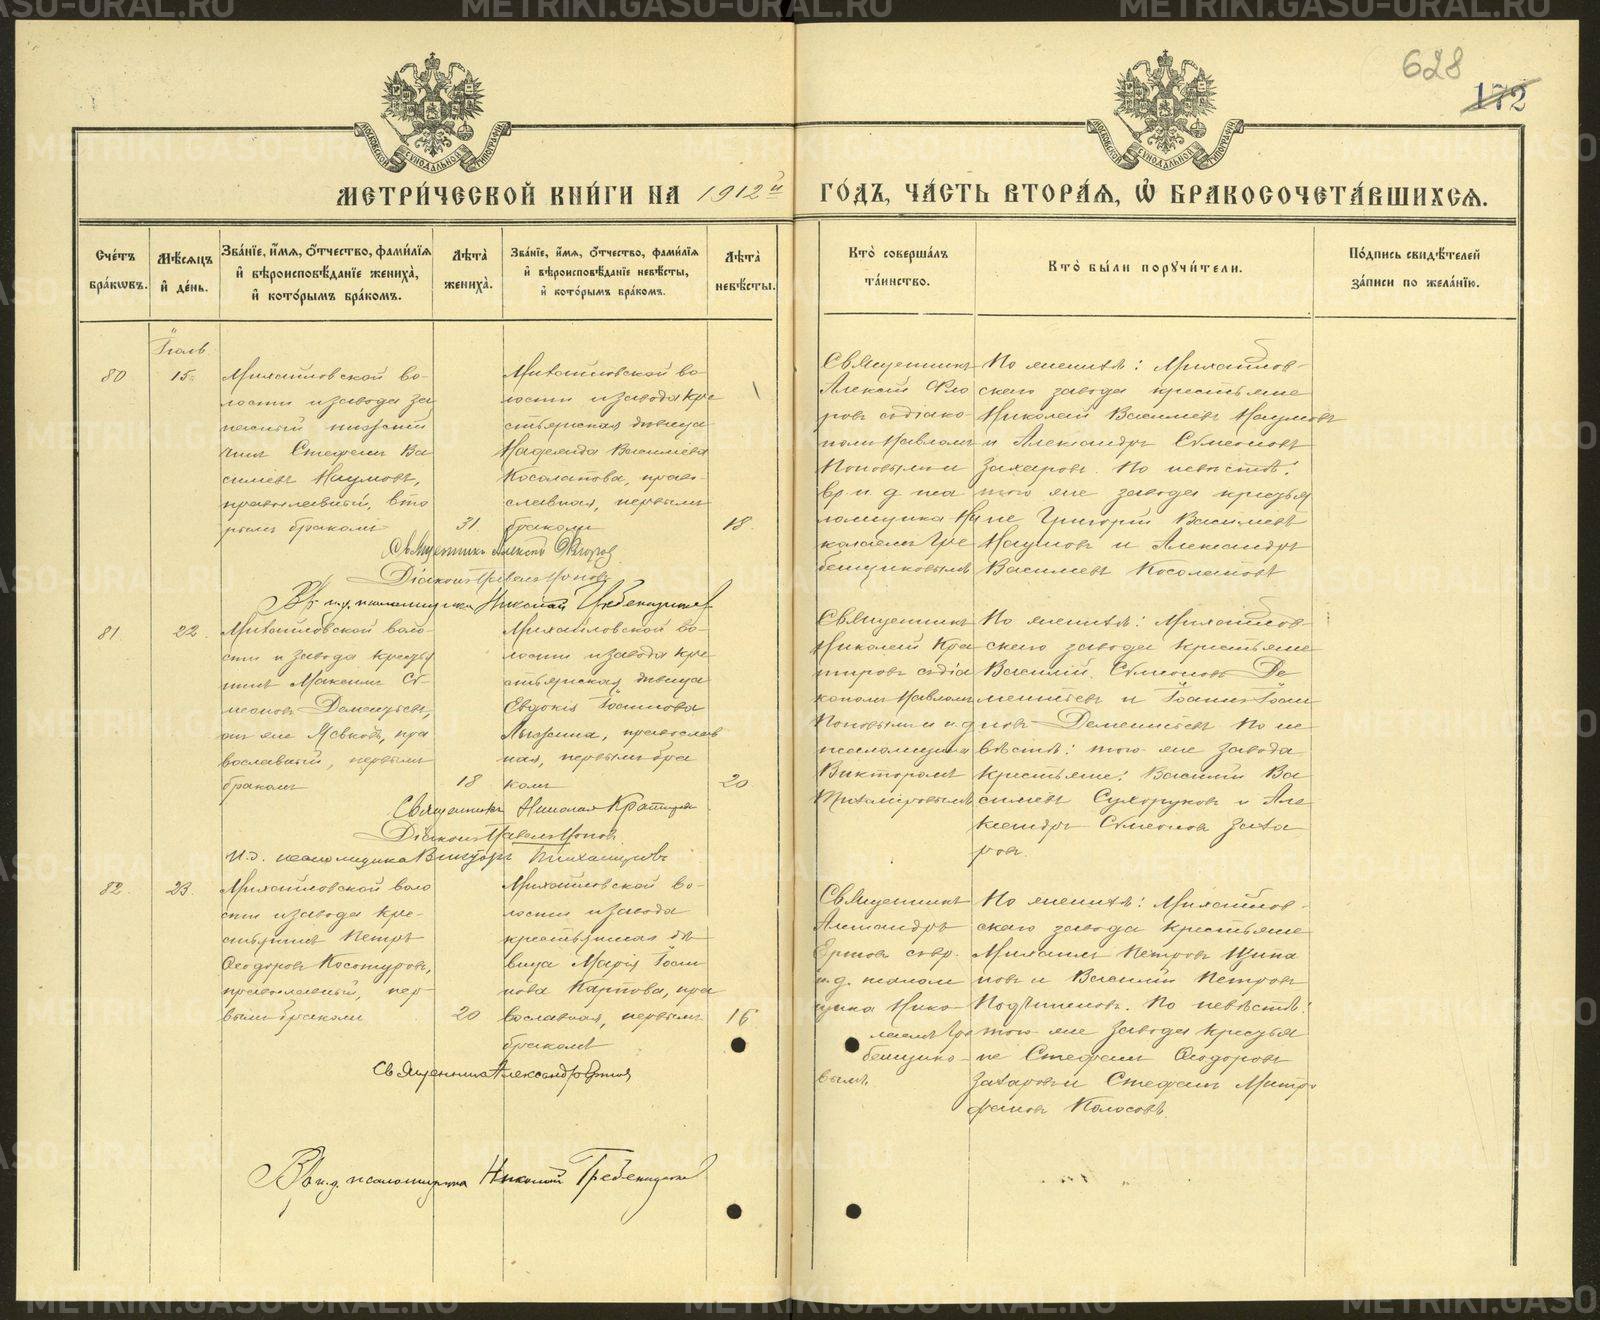 628
172
МЕТРИ́ЧЕСКОЙ КНИ́ГИ НА 1912й ГО́ДЪ, ЧА́СТЬ ВТОРА́Я, Ѡ БРАКОСОЧЕТА́ВШИХСЯ.
МОСКОВСКОЙ СѴНОДАЛЬНОЙ ТИПОГРАФІИ
МОСКОВСКОЙ СѴНОДАЛЬНОЙ ТИПОГРАФІИ
Сче́тъ
бра́кѡвъ.
Мѣсяцъ
и де́нь.
Зва́ніе, и́мя, о́тчество, фами́лія
и вѣроисповѣ́даніе жениха̀,
и кото́рымъ бра́комъ.
Лѣта̀
жениха̀.
Зва́ніе, и́мя, о́тчество, фами́лія
и вѣроисповѣ́даніе невѣ́сты,
и кото́рымъ бра́комъ.
Лѣта̀
невѣ́сты.
Кто̀ соверша́лъ
та́инство.
Кто̀ бы́ли поручи́тели.
По́дпись свидѣ́телей
за́писи по жела́нію.
Іюль
80
15.
Михайловской во-
лости и завода за
пасный нижній
чинъ Стефанъ Ва
сильевъ Наумовъ,
православный, вто
рымъ бракомъ
31.
Михайловской во
лости и завода кре
стьянская дѣвица
Надежда Василіева
Косолапова, право-
славная, первымъ
бракомъ
18.
Священникъ
Алексій Фло
ровъ съ діако-
номъ Павломъ
Поповымъ и
вр. и. д. пса
ломщика Ни
колаемъ Гре
бенщиковымъ
По женихѣ: Михайлов-
скаго завода крестьяне
Николай Васильевъ Наумовъ
и Александръ Сѵмеоновъ
Захаровъ. По невѣстѣ:
того же завода крестья
не Григорій Васильевъ
Наумовъ и Александръ
Васильевъ Косолаповъ
Священникъ Алексій Флоровъ
Діаконъ Павелъ Поповъ
Вр. и.д. псаломщика Николай Гребенщиковъ
81
22.
Михайловской воло-
сти и завода крестья
нинъ Максимъ Сѵ-
меоновъ Дементьевъ,
онъ же Ясвковъ, пра
вославный, первымъ
бракомъ
18
Михайловской во-
лости и завода кре
стьянская дѣвица
Евдокія Іоаннова
Лыжина, православ
ная, первымъ бра
комъ
20
Священникъ
Николай Кра
тировъ съ діа
кономъ Павломъ
Поповымъ и и. д
псаломщика
Викторомъ
Тихоміровымъ
По женихѣ: Михайлов-
скаго завода крестьяне
Василій Сѵмеоновъ Де
ментьевъ и Іоаннъ Іоан
новъ Дементьевъ. По не
вѣстѣ: того же завода
крестьяне: Василій Ва
сильевъ Сухоруковъ и Але
ксандръ Сѵмеоновъ Заха
ровъ.
Священникъ Николай Кратировъ
Діаконъ Павелъ Поповъ
И.д. псаломщика Викторъ Тихоміровъ
82
23.
Михайловской воло
сти и завода кре-
стьянинъ Петръ
Ѳеодоровъ Косотуровъ,
православный, пер-
вымъ бракомъ
20
Михайловской во-
лости и завода
крестьянская дѣ
вица Марія Іоан
нова Карпова, пра
вославная, первымъ
бракомъ
16
Священникъ
Александръ
Ершовъ съ вр.
и.д. псалом
щика Нико
лаемъ Гре
бенщико-
вымъ.
По женихѣ: Михайлов-
скаго завода крестьяне
Михаилъ Петровъ Щипа
новъ и Василій Петровъ
Подшиленовъ. По невѣстѣ:
того же завода крестья
не Стефанъ Ѳеодоровъ
Захаровъ и Стефанъ Митро
фановъ Колосовъ.
Священникъ Александръ Ершовъ
Вр. и.д. псаломщика Николай Гребенщиковъ